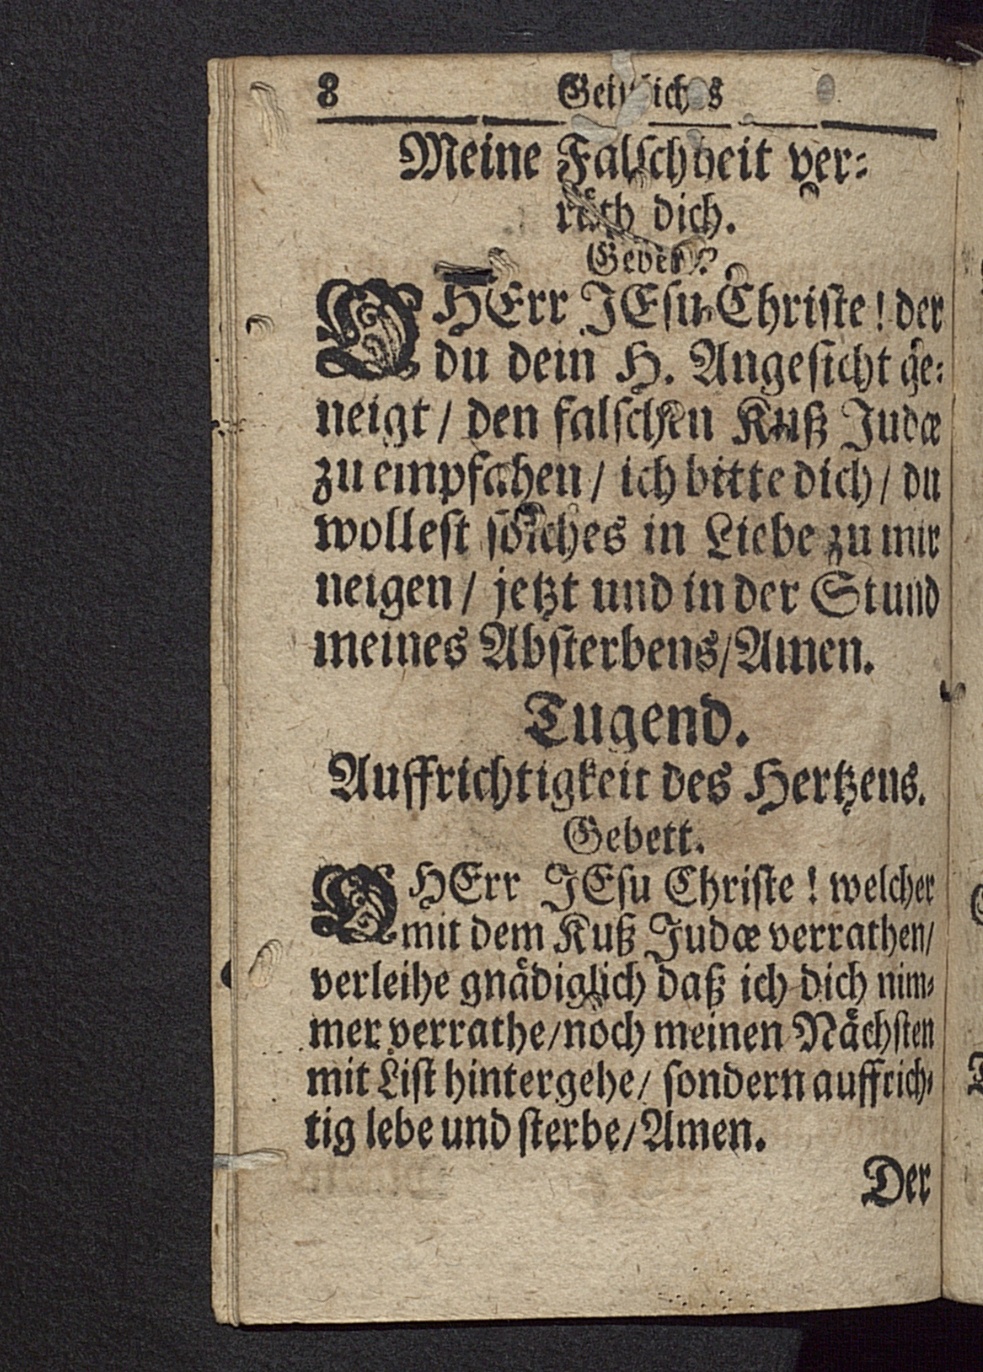 8 Geistliches
Meine Falschheit ver-
räth dich.
Gebett.
O HErr JEsu Christe! der
du dein H. Angesicht ge-
neigt / den falschen Kuß Judæ
zu empfahen / ich bitte dich / du
wollest solches in Liebe zu mir
neigen / jetzt und in der Stund
meines Absterbens / Amen.
Tugend.
Auffrichtigkeit des Hertzens.
Gebett.
O HErr JEsu Christe! welcher
mit dem Kuß Judæ verrathen /
verleihe gnädiglich daß ich dich nim-
mer verrathe / noch meinen Nächsten
mit List hintergehe / sondern auffrich-
tig lebe und sterbe / Amen.
Der